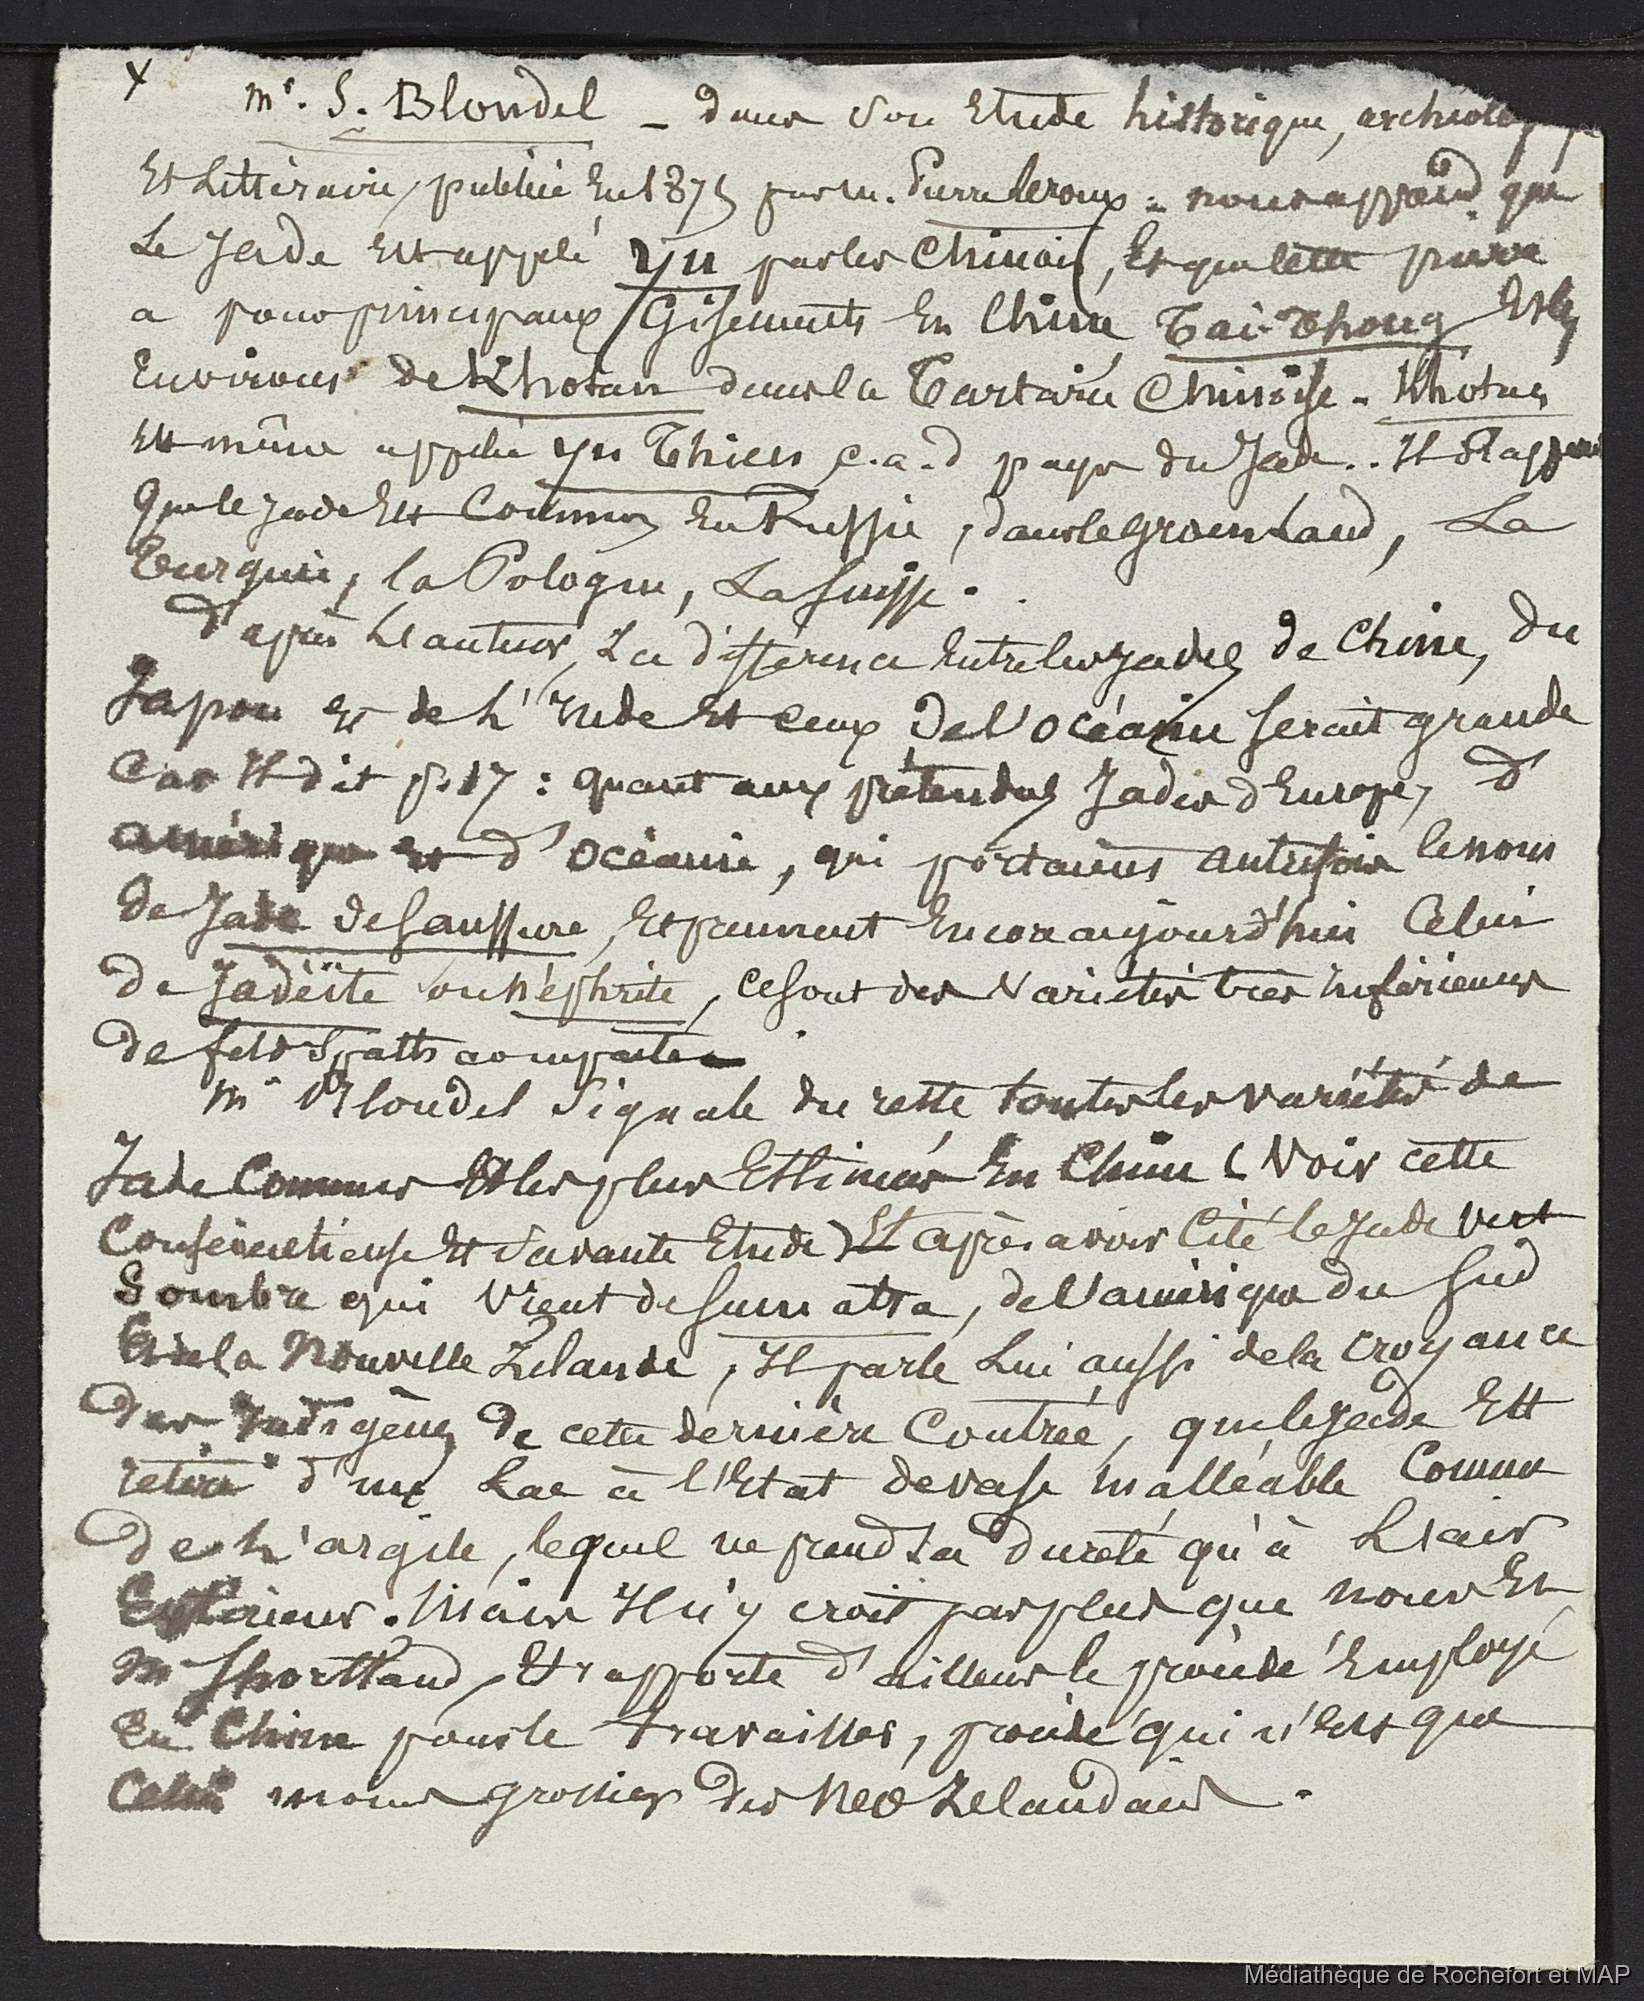 x Mr. S. Blondel _ dans son Etude historique, archéolog
Et Littéraire, publiée En 1875 par M. Pierre Leroux - nous apprend que
Le Jade Est appelé yu par les Chinois, Et que cette pierre
a pour principaux Gisements En Chine Taï-Thong Et les
Environs de Khotan dans la Tartarie Chinoise - Khotan
Est même appelée yu Thien c.a.d pays du Jade.. Il
que le Jade Est Commun En Russie, dans le Groenland, La
Turquie, la Pologne, La Suisse.
D'après L'auteur, La différence Entre les Jades de Chine, du
Japon et de L'Inde Et ceux De l'océanie serait grande
Car Il dit p. 17 : quant aux prétendus Jades d'Europe, d'
amérique et d'océanie, qui portaient autrefois le nom
De Jade de Saussure, Et prennent Encore aujourd'hui Celui
De Jadéïte ou néphrite, ce sont des Variétés très inférieures
De feldspaths compactes
Mr Blondel signale du reste toutes les variétés de
Jade Connues Et les plus Estimées En Chine (Voir cette
Consciencieuse Et savante Etude) Et après avoir Cité le Jade vert
Sombre qui Vient de Sumatra, de l'amérique du Sud
Et de la Nouvelle Zélande, Il parle Lui aussi de la croyance
Des Indigènes De cette dernière Contrée, que le Jade Est
retiré d'un Lac à l'Etat de vase malléable Comme
De L'argile, lequel ne prend sa dureté qu'à L'air
Extérieur. Mais Il n'y croit pas plus que nous Et
Mr Shortland, Et rapporte d'ailleurs le procédé Employé
En Chine pour le travailler, procédé qui n'Est que
Celui moins grossier Des Néo Zélandais.
Médiathèque de Rochefort et MAP